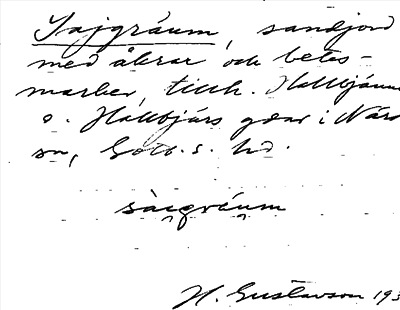 Sajgräum, sandjord
med åkrar och betes-
marker, tillh. Hallbjänne
o. Hallbjärs gård i När
sn, Gotl. s. hd.
sàigráum
H. Gustavson 193